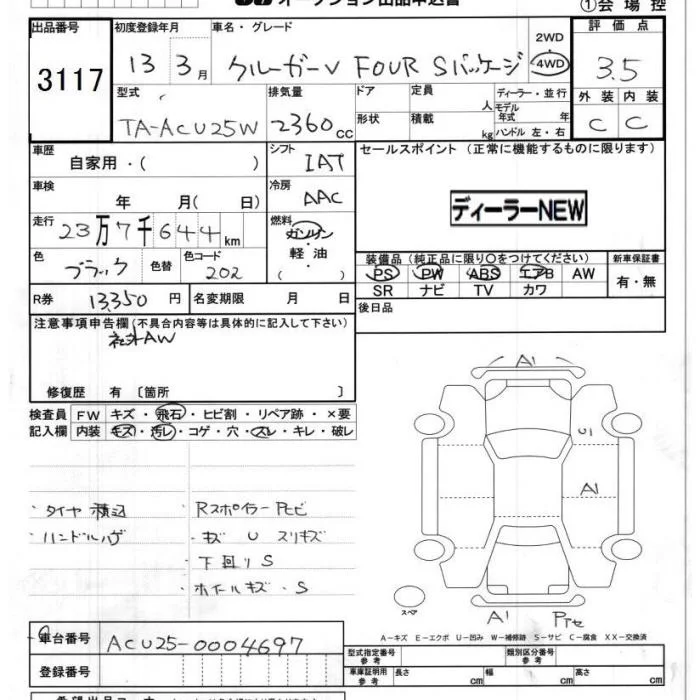 オークション出品申込書
①会場控
出品番号
3117
初度登録年月
13 3月
車名・グレード
クルーガーV FOUR Sパッケージ
2WD
・
4WD
評価点
3.5
外装 内装
C C
型式
TA-ACU25W
排気量
2360cc
ドア
形状
定員
人
積載
kg
ディーラー・並行
モデル年式 年
ハンドル 左・右
車歴
自家用・( )
シフト
IAT
セールスポイント (正常に機能するものに限ります)
ディーラーNEW
車検
年 月( 日)
冷房
AAC
走行
23万7千644km
燃料
ガソリン
軽油
( ・ )
色
ブラック
色替
色コード
202
装備品 (純正品に限り〇をつけてください)
PS PW ABS エアB AW
SR ナビ TV カワ
新車保証書
有・無
R券 13,350円
名変期限 月 日
後日品
注意事項申告欄(不具合内容等は具体的に記入して下さい)
社外AW
修復歴 有 〔箇所 〕
検査員 FW キズ・飛石・ヒビ割・リペア跡・×要
記入欄 内装 キズ・汚レ・コゲ・穴・スレ・キレ・破レ
・タイヤ積込
・ハンドルハゲ
Rスポイラー
・キズ U スリキズ
・下回り S
・ホイールキズ・S
A1
U1
A1
スペア
A1
A-キズ E-エクボ U-凹み W-補修跡 S-サビ C-腐食 XX-交換済
車台番号
ACU25-0004697
登録番号
型式指定番号
参考
類別区分番号
参考
車庫証明用
参考
長さ cm
幅 cm
高さ cm